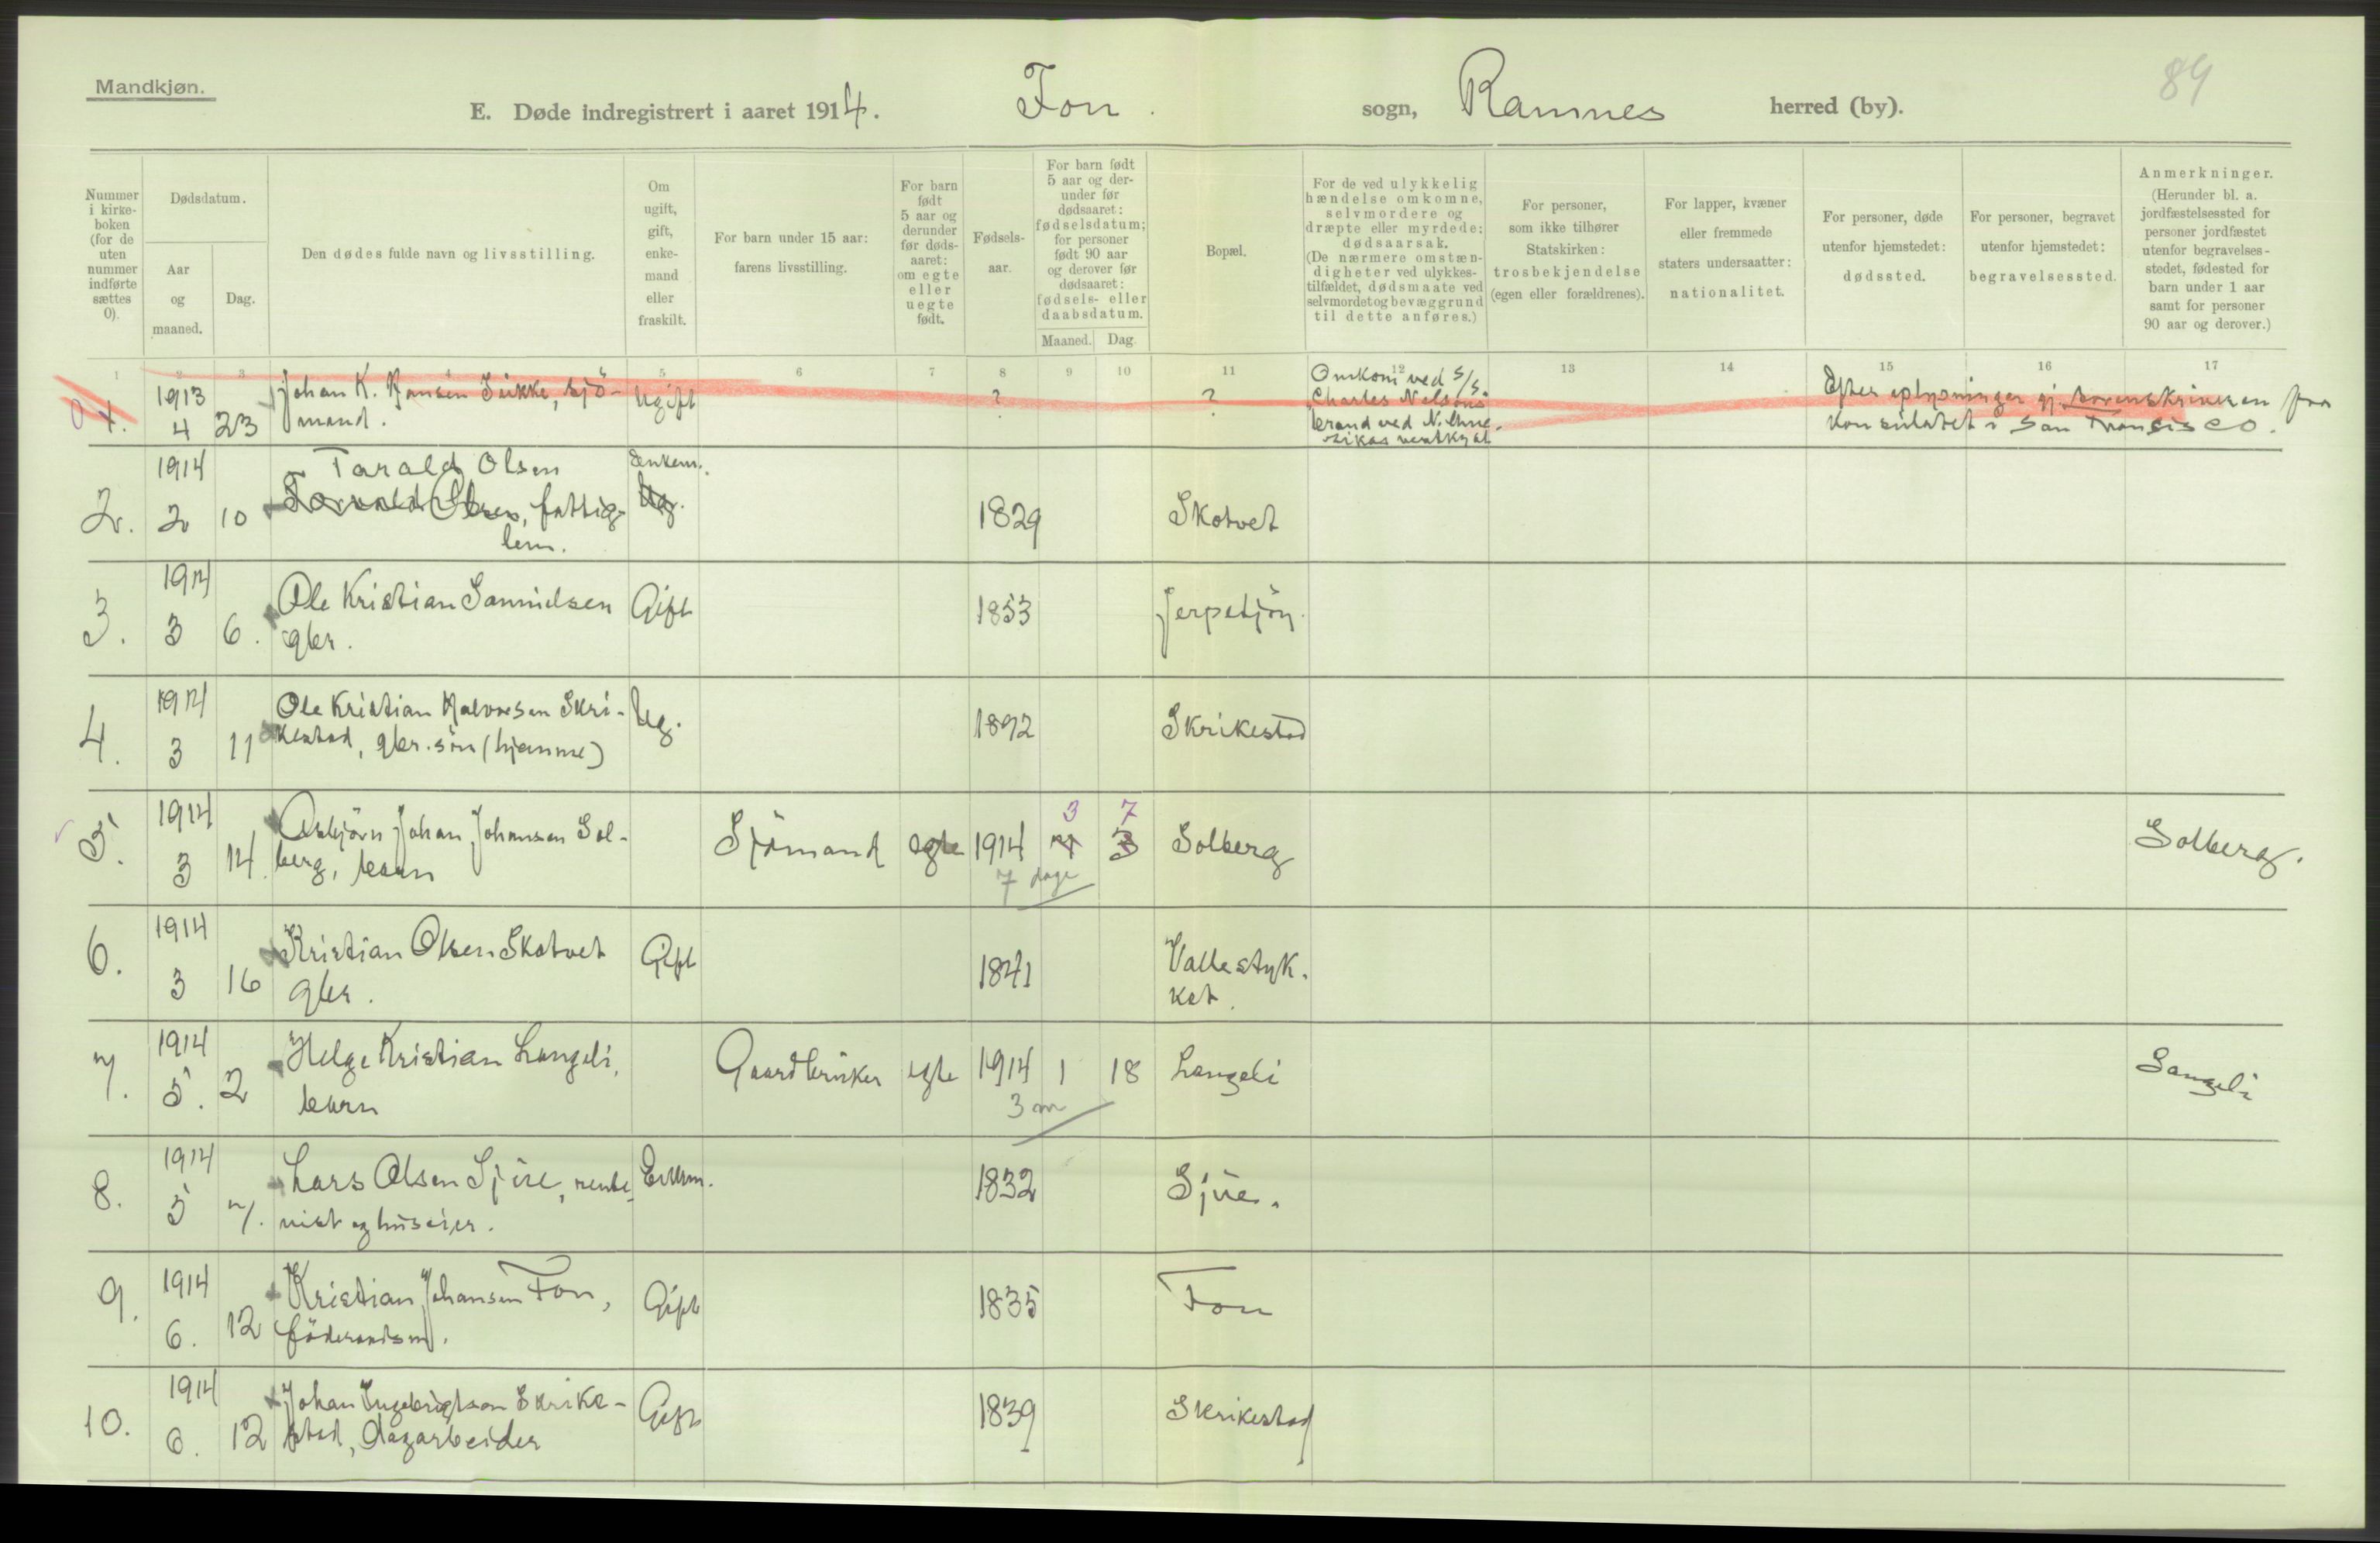 Mandkjøn.
84
E. Døde indregistrert i aaret 1914. Fon. sogn, Ramnes herred (by).
Nummer
i kirke-
boken
(for de
uten
nummer
indførte
sættes
0).
Dødsdatum.
Aar
og
maaned.
Dag.
Den dødes fulde navn og livsstilling.
Om
ugift,
gift,
enke-
mand
eller
fraskilt.
For barn under 15 aar:
farens livsstilling.
For barn
født
5 aar og
derunder
før døds-
aaret:
om egte
eller
uegte
født.
Fødsels-
aar.
For barn født
5 aar og der-
under før
dødsaaret:
fødselsdatum;
for personer
født 90 aar
og derover før
dødsaaret:
fødsels- eller
daabsdatum.
Maaned. Dag.
Bopæl.
For de ved ulykkelig
hændelse omkomne,
selvmordere og
dræpte eller myrdede:
dødsaarsak.
(De nærmere omstæn-
digheter ved ulykkes-
tilfældet, dødsmaate ved
selvmordet og bevæggrund
til dette anføres.)
For personer,
som ikke tilhører
Statskirken:
trosbekjendelse
(egen eller forældrenes).
For lapper, kvæner
eller fremmede
staters undersaatter:
nationalitet.
For personer, døde
utenfor hjemstedet:
dødssted.
For personer, begravet
utenfor hjemstedet:
begravelsessted.
Anmerkninger.
(Herunder bl. a.
jordfæstelsessted for
personer jordfæstet
utenfor begravelses-
stedet, fødested for
barn under 1 aar
samt for personer
90 aar og derover.)
1 2 3 4 5 6 7 8 9 10 11 12 13 14 15 16 17
0 1. 1913 4 23 Johan K. Hansen Sukke, sjö-
mand. Ugift ? ? Omkom ved S/S.
Charles Nelsons
brand ved N. Ame-
rikas vestkyst
Efter oplysninger gj. sorenskriveren fra
konsulatet i San Fransisco.
2. 1914 2 10 Tarald Olsen
Torvald Olsen, fattig-
lem. Enkem. Ug. 1829 Skotvet
3. 1914 3 6. Ole Kristian Samuelsen
gbr. Gift 1853 Jerpetjön.
4. 1914 3 11 Ole Kristian Halvorsen Skri-
kestad, gbr. sön (hjemme) Ug. 1892 Skrikestad
5. 1914 3 14. Asbjörn Johan Johansen Sol-
berg, barn Sjömand egte 1914 3 7 Solberg Solberg.
7 dage
6. 1914 3 16 Kristian Olsen Skotvet
gbr. Gift 1841 Vallestyk-
ket.
7. 1914 5. 2 Helge Kristian Langeli,
barn Gaardbruker egte 1914 1 18 Langeli Langeli
3 m
8. 1914 5 7. Lars Olsen Sjue, rente-
nist og huseier. Enkem. 1832 Sjue.
9. 1914 6. 12 Kristian Johansen Fon,
föderaadsm. Gift 1835 Fon
10. 1914 6. 12 Johan Ingebrigtsen Skrike-
stad, dagarbeider Gift 1839 Skrikestad